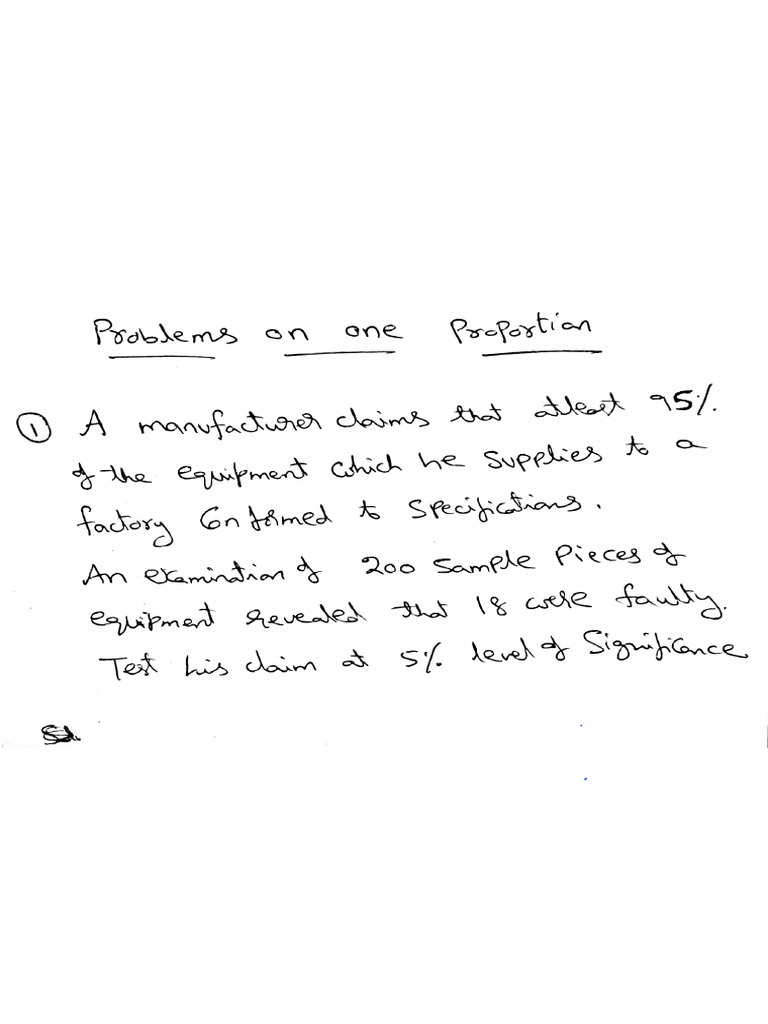 Problems on one Proportion
① A manufacturer claims that atleast 95%
of the equipment which he supplies to a
factory Conformed to specifications.
An examination of 200 sample pieces of
equipment revealed that 18 were faulty.
Test his claim at 5% level of Significance